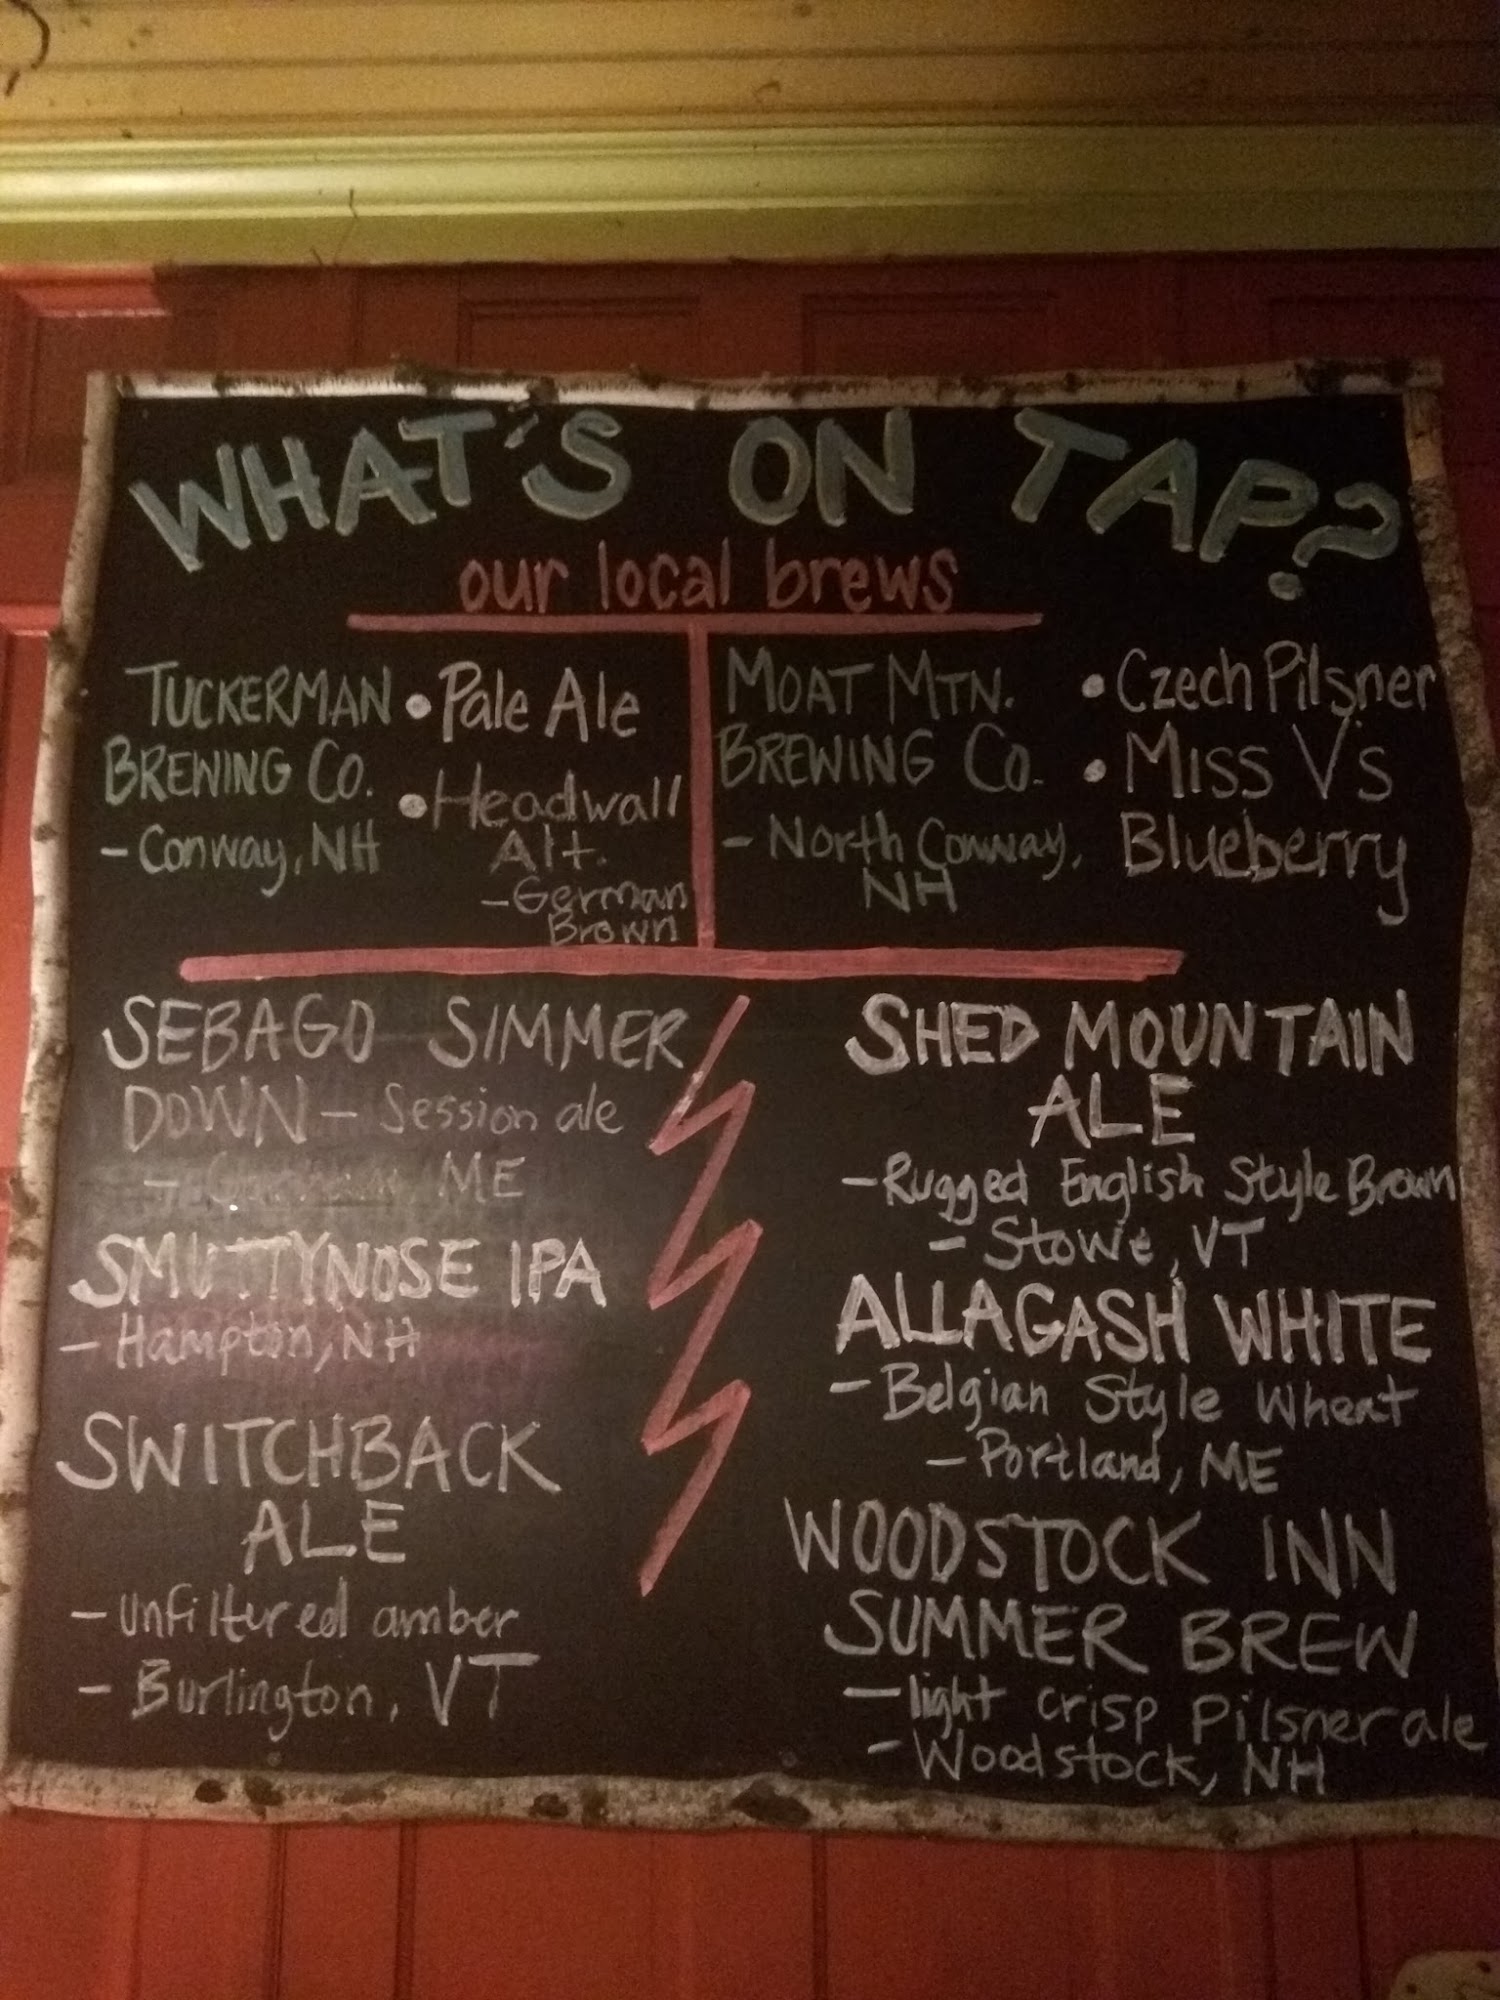 WHAT'S ON TAP?
our local brews
TUCKERMAN
BREWING CO.
- Conway, NH
• Pale Ale
• Headwall
Alt.
- German
Brown
MOAT MTN.
BREWING CO.
- North Conway,
NH
• Czech Pilsner
• MISS V's
Blueberry
SEBAGO SIMMER
DOWN - Session ale
- ME
SMUTTYNOSE IPA
- Hampton, NH
SWITCHBACK
ALE
- unfiltured amber
- Burlington, VT
SHED MOUNTAIN
ALE
- Rugged English Style Brown
- Stowe, VT
ALLAGASH WHITE
- Belgian Style Wheat
- Portland, ME
WOODSTOCK INN
SUMMER BREW
- light crisp Pilsner ale
- Woodstock, NH